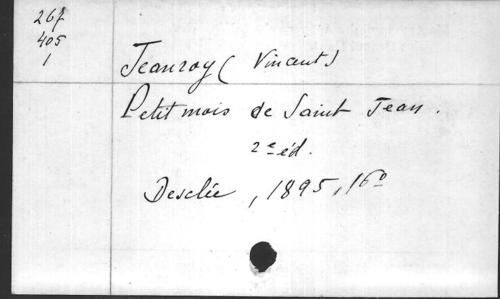 267
405
1
Jeanroy (Vincent)
Petit mois de Saint Jean.
2e éd.
Desclée, 1895, 16o